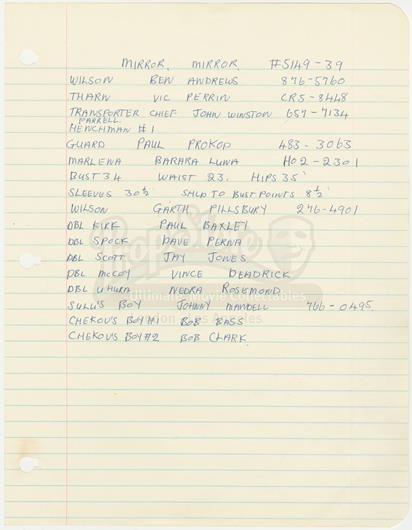 MIRROR, MIRROR #5149-39
WILSON BEN ANDREWS 876-5760
THARN VIC PERRIN CR5-8448
TRANSPORTER CHIEF JOHN WINSTON 657-7134
FARRELL
HENCHMAN #1
GUARD PAUL PROKOP 483-3063
MARLENA BARBARA LUNA HO2-2301
BUST 34 WAIST 23. HIPS 35"
SLEEVES 30½" SHLD TO BUST POINTS 8½"
WILSON GARTH PILLSBURY 276-4901
DBL KIRK PAUL BAXLEY
DBL SPOCK DAVE PERNA
DBL SCOTT JAY JONES
DBL McCOY VINCE DEADRICK
DBL UHURA NEDRA ROSEMOND
SULU'S BOY JOHNNY MANDELL 766-0495
CHEKOV'S BOY #1 BOB BASS
CHEKOV'S BOY #2 BOB CLARK
PropStore
Ultimate Movie Collectables
London - Los Angeles